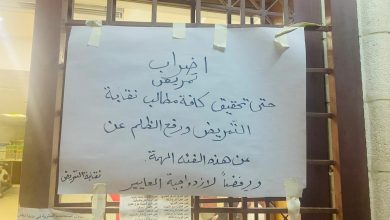 اضراب
تمريض
حتى تحقيق كافة مطالب نقابة
التمريض ورفع الظلم عن
عن هذه الفئه المهمة
ورفضاً لازدواجية المعايير
نقابة التمريض